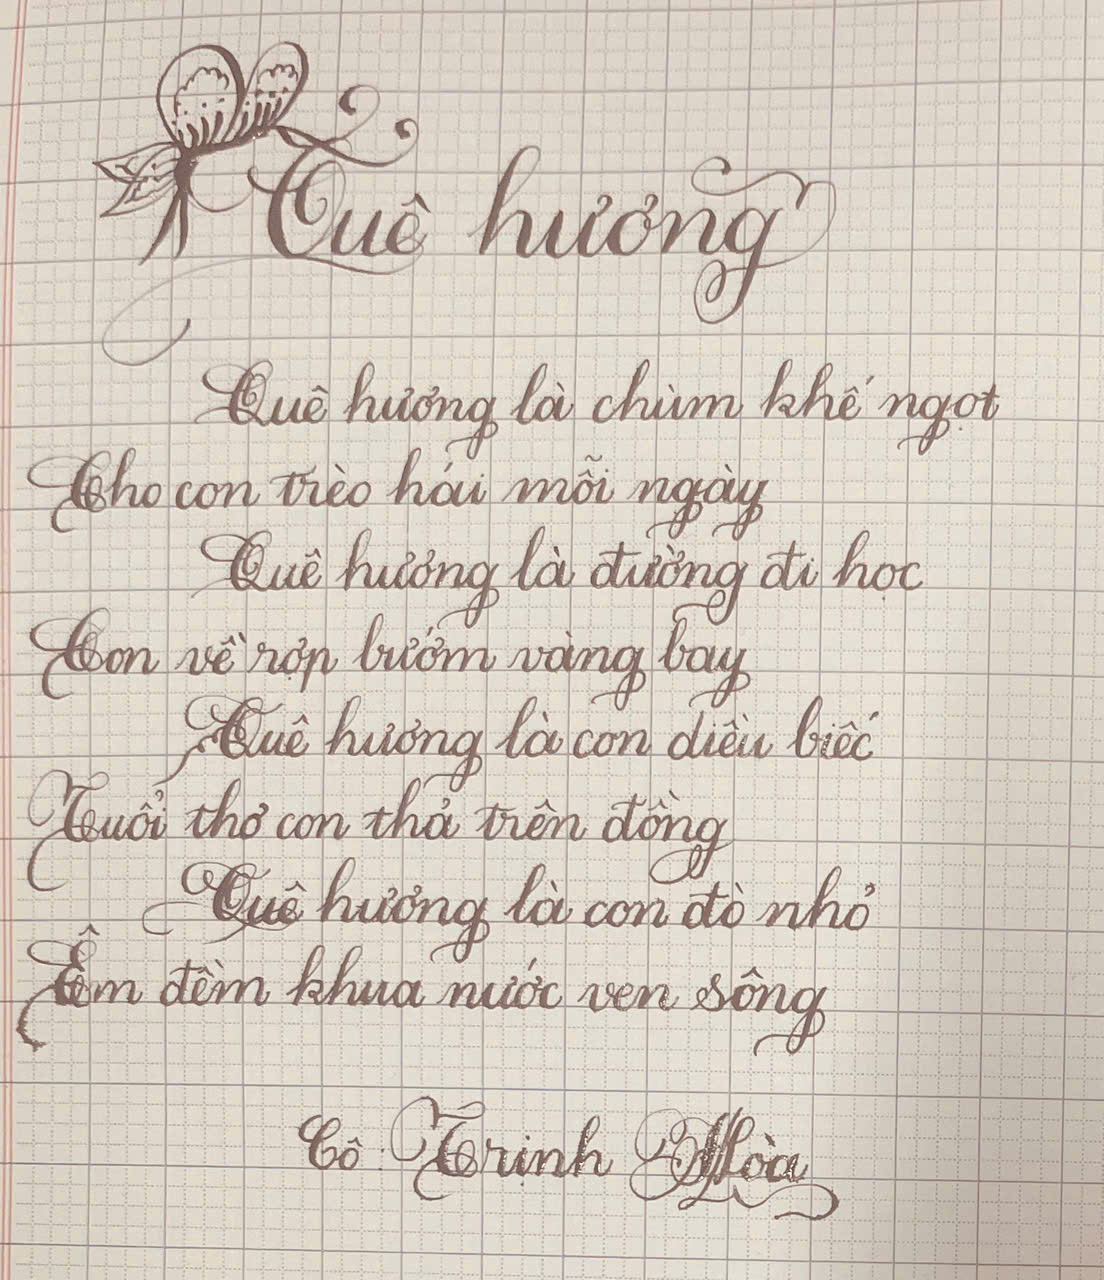 Quê hương
Quê hương là chùm khế ngọt
Cho con trèo hái mỗi ngày
Quê hương là đường đi học
Con về rợp bướm vàng bay
Quê hương là con diều biếc
Tuổi thơ con thả trên đồng
Quê hương là con đò nhỏ
Êm đềm khua nước ven sông
Cô Trịnh Hòa